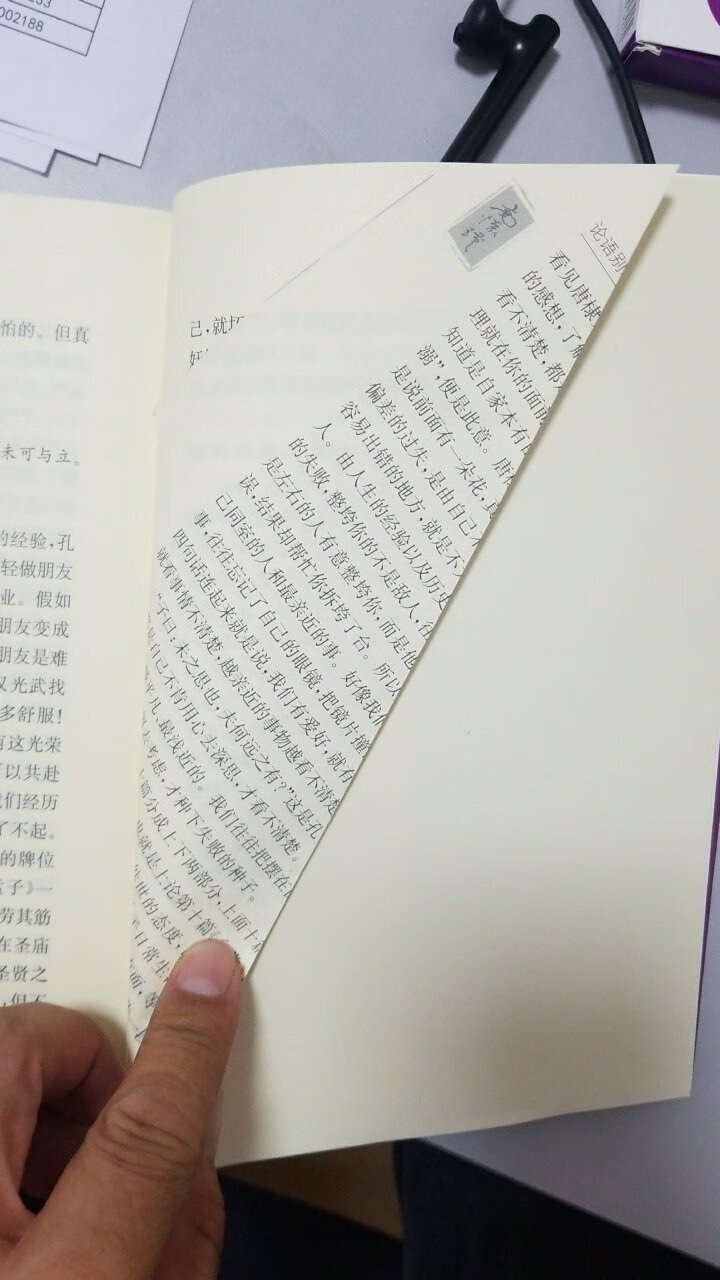 002188
怕的。但真
未可与立。
的经验,孔
轻做朋友
业。假如
朋友变成
朋友是难
汉光武找
多舒服!
有这光荣
可以共赴
我们经历
了不起。
的牌位
孟子》一
劳其筋
在圣庙
圣贤之
,但不
己,就打
好
南怀瑾
论语别
看见唐棣
的感想,了解
看不清楚,都
理就在你的面前
知道是自家本有
溺”,便是此意。唐
是说前面有一朵花,真
偏差的过失,是由自己
容易出错的地方,就是不
人。由人生的经验以及历史
的失败,整垮你的不是敌人,往
是左右的人有意整垮你,而是他
误,结果却帮忙你拆垮了台。所以
己同室的人和最亲近的事。好像我们
事,往往忘记了自己的眼镜,把镜片撞
四句话连起来就是说,我们有爱好,就有
就看事情不清楚,越亲近的事物越看不清楚
“子曰:未之思也,夫何远之有?”这是孔
自己不肯用心去深思,才看不清楚。
平凡、最浅近的。我们往往把摆在
去考虑,才种下失败的种子。
篇分成上下两部分,上面十篇
也就是上论第十篇《
世的态度,
日常生
方面,等